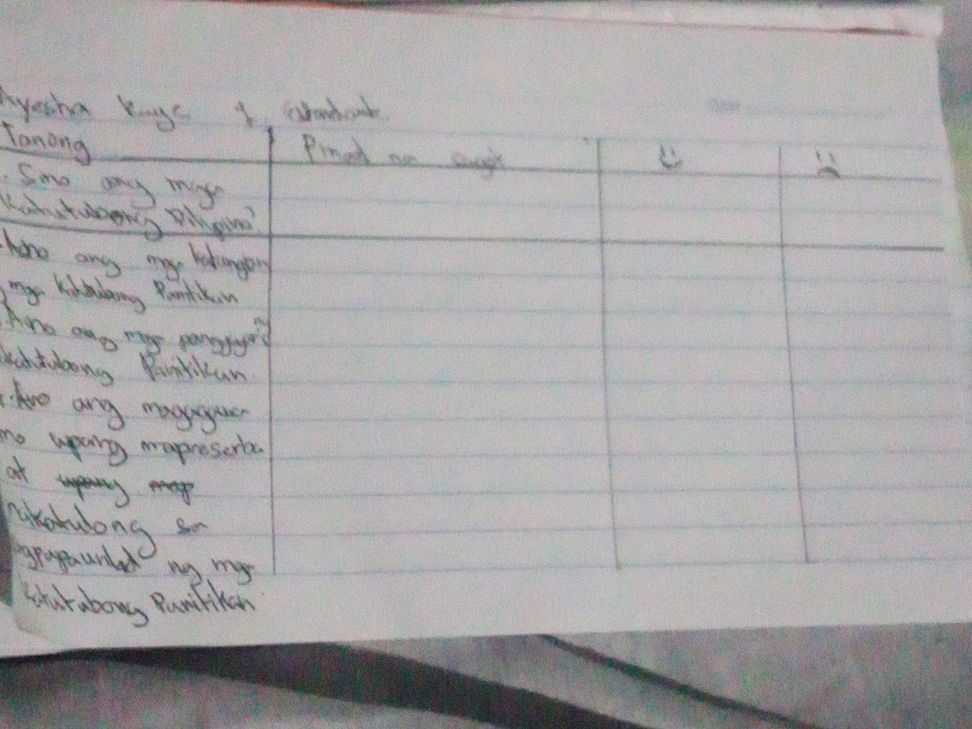 Ayesha Kaye
Tanong
Sino ang mga
Katutubong Pilipino?
Ano ang mga katangian
mga Katutubong Panitikan
Ano ang mga ng
katutubong Panitikan
Ano ang magagawa
mo upang mapreserba
at upang map
makatulong sa
pagpapaunlad ng mga
katutubong Panitikan